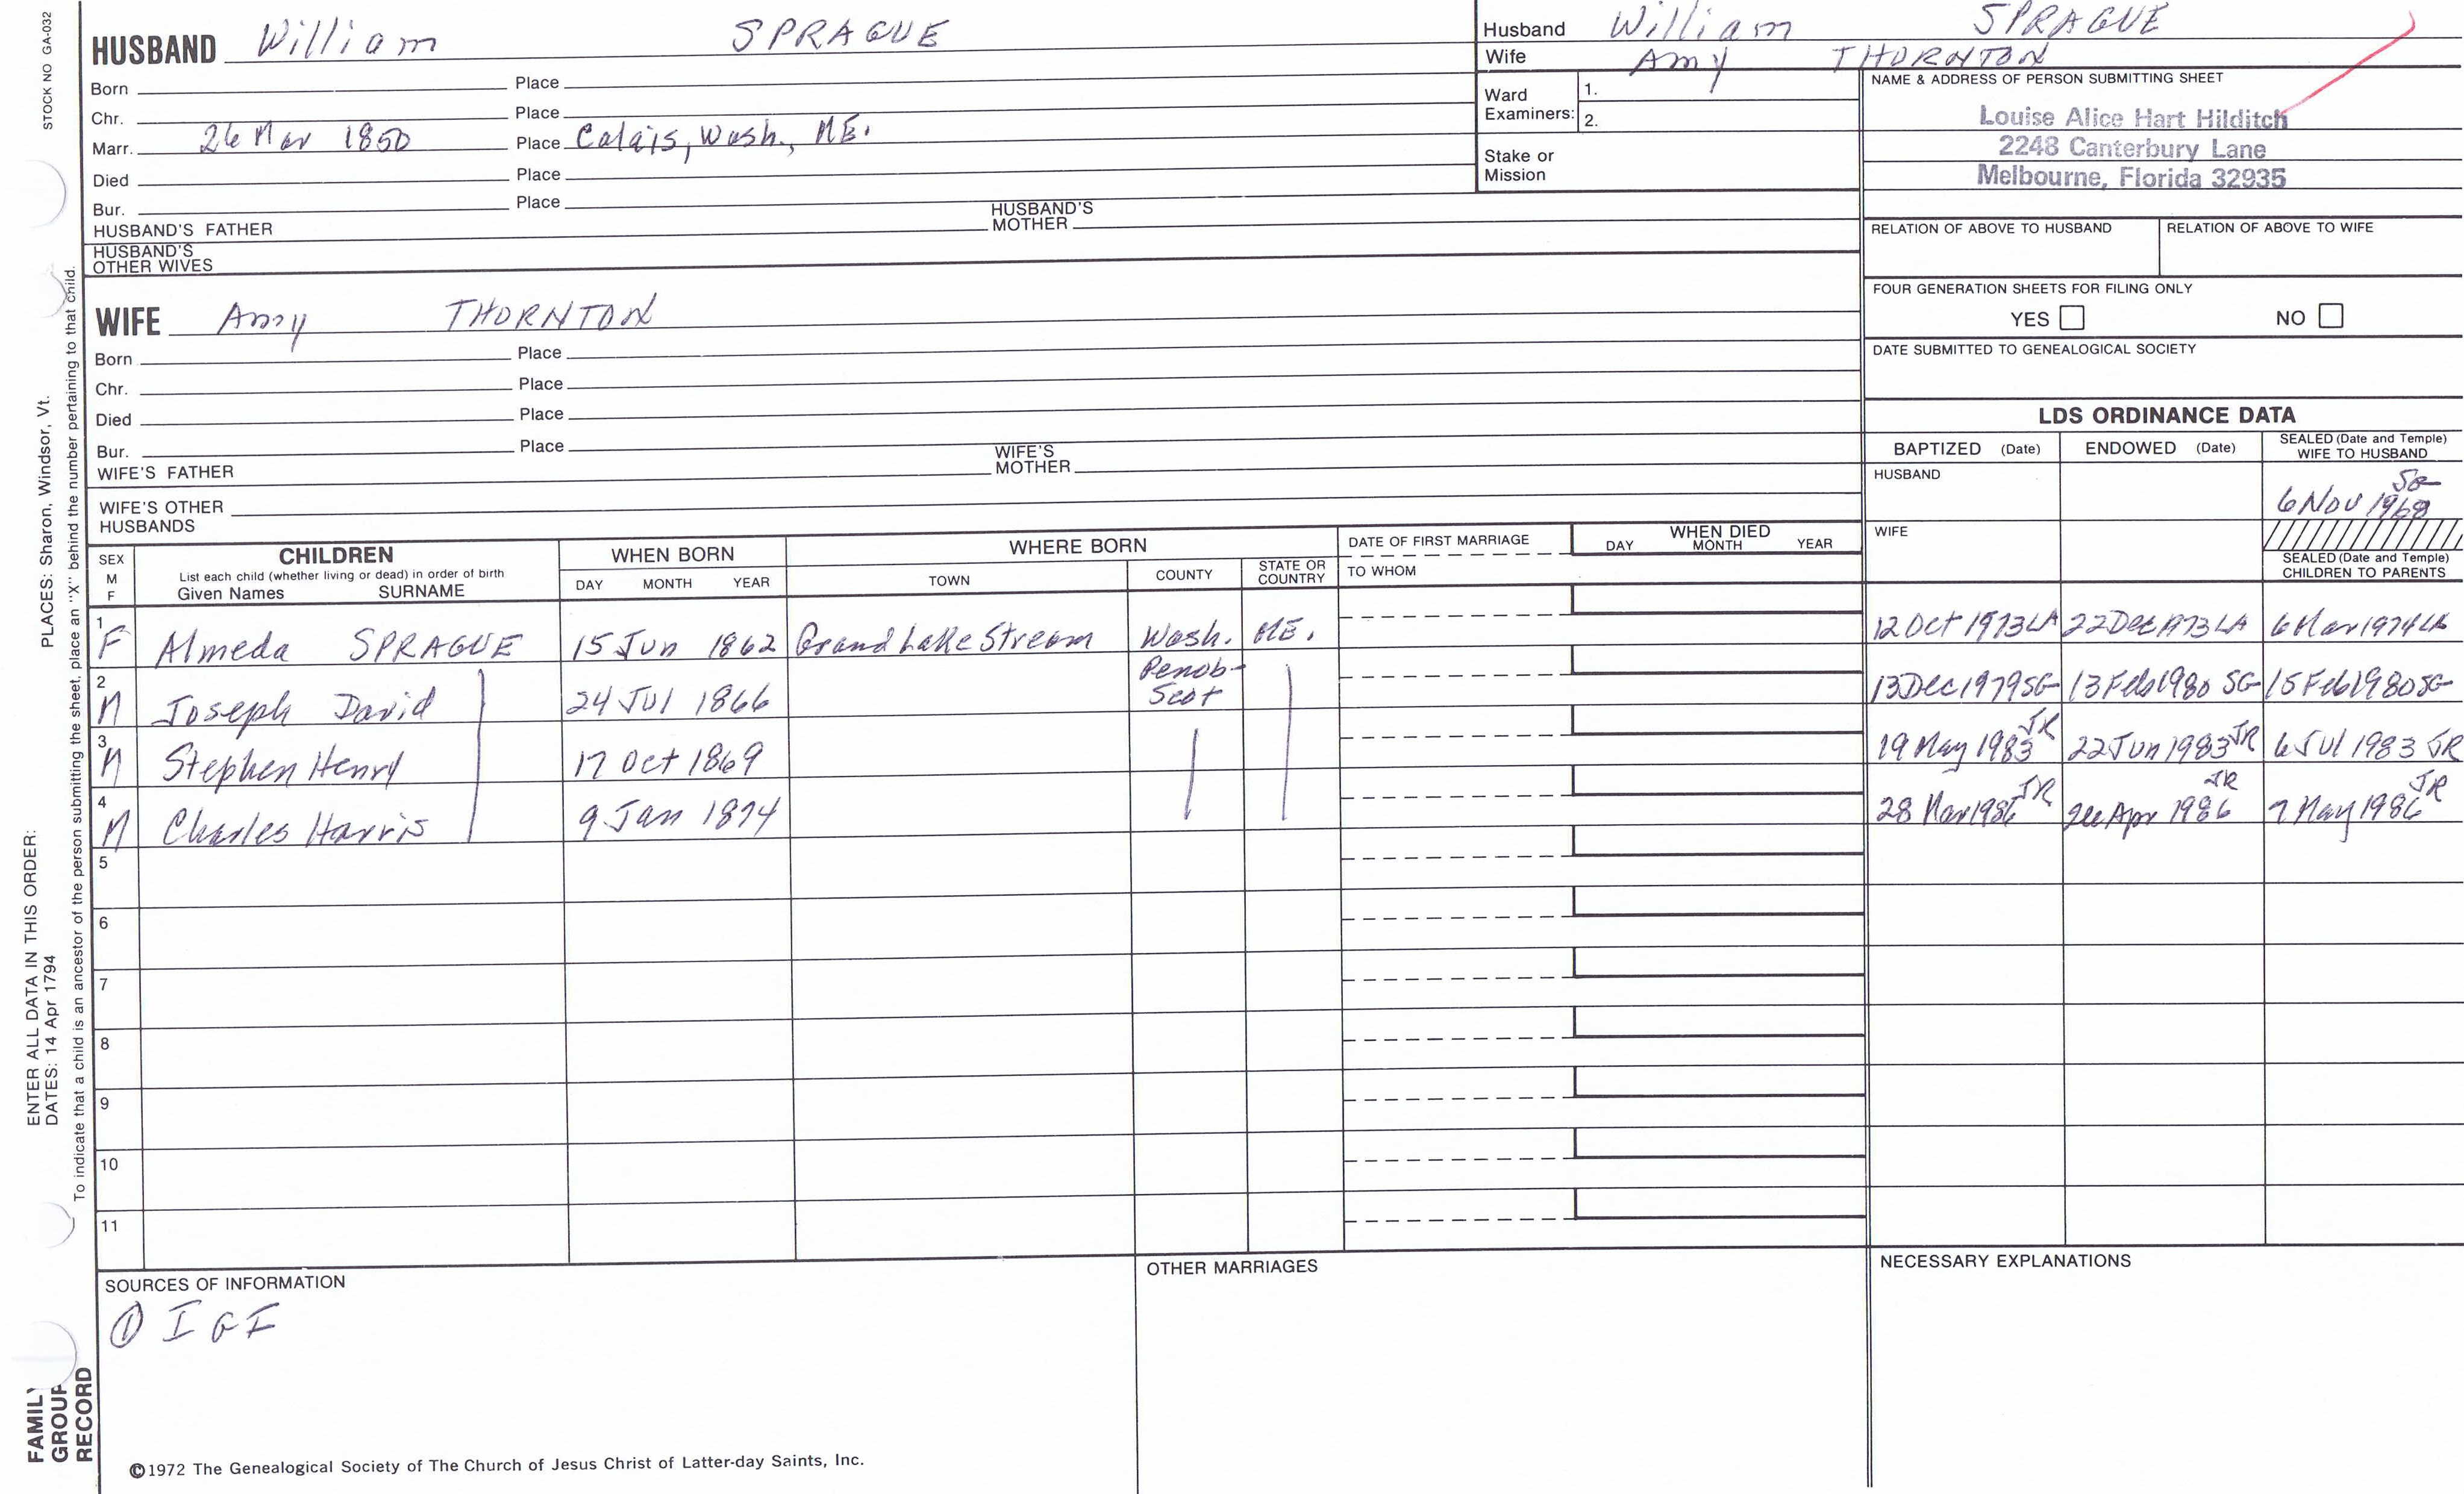 STOCK NO GA-032
HUSBAND William SPRAGUE
Born Place
Chr. Place
Marr. 26 Mar 1850 Place Calais, Wash., ME.
Died Place
Bur. Place
HUSBAND'S FATHER HUSBAND'S MOTHER
HUSBAND'S OTHER WIVES
WIFE Amy THORNTON
Born Place
Chr. Place
Died Place
Bur. Place
WIFE'S FATHER WIFE'S MOTHER
WIFE'S OTHER HUSBANDS
Husband William SPRAGUE
Wife Amy THORNTON
Ward Examiners: 1.
2.
Stake or Mission
NAME & ADDRESS OF PERSON SUBMITTING SHEET
Louise Alice Hart Hilditch
2248 Canterbury Lane
Melbourne, Florida 32935
RELATION OF ABOVE TO HUSBAND RELATION OF ABOVE TO WIFE
FOUR GENERATION SHEETS FOR FILING ONLY
YES NO
DATE SUBMITTED TO GENEALOGICAL SOCIETY
LDS ORDINANCE DATA
BAPTIZED (Date) ENDOWED (Date) SEALED (Date and Temple) WIFE TO HUSBAND
HUSBAND 6 Nov
WIFE
SEALED (Date and Temple) CHILDREN TO PARENTS
SEX M F CHILDREN WHEN BORN WHERE BORN DATE OF FIRST MARRIAGE WHEN DIED
List each child (whether living or dead) in order of birth
Given Names SURNAME DAY MONTH YEAR TOWN COUNTY STATE OR COUNTRY TO WHOM DAY MONTH YEAR
1 F Almeda SPRAGUE 15 Jun 1862 Grand Lake Stream Wash. ME. 12 Oct 1973 LA 22 Dec 1973 LA 6 Mar 1974 LA
2 M Joseph David 24 Jul 1866 Penob-Scot 13 Dec 1979 SG 13 Feb 1980 SG 15 Feb 1980 SG
3 M Stephen Henry 17 Oct 1869 19 May 1983 JR 22 Jun 1983 JR 6 Jul 1983 JR
4 M Charles Harris 9 Jan 1874 28 Mar 1986 JR Apr 1986 JR 7 May 1986 JR
5
6
7
8
9
10
11
SOURCES OF INFORMATION
① IGI
OTHER MARRIAGES
NECESSARY EXPLANATIONS
©1972 The Genealogical Society of The Church of Jesus Christ of Latter-day Saints, Inc.
ENTER ALL DATA IN THIS ORDER:
DATES: 14 Apr 1794 PLACES: Sharon, Windsor, Vt.
To indicate that a child is an ancestor of the person submitting the sheet, place an "X" behind the number pertaining to that child.
FAMILY
GROUP
RECORD